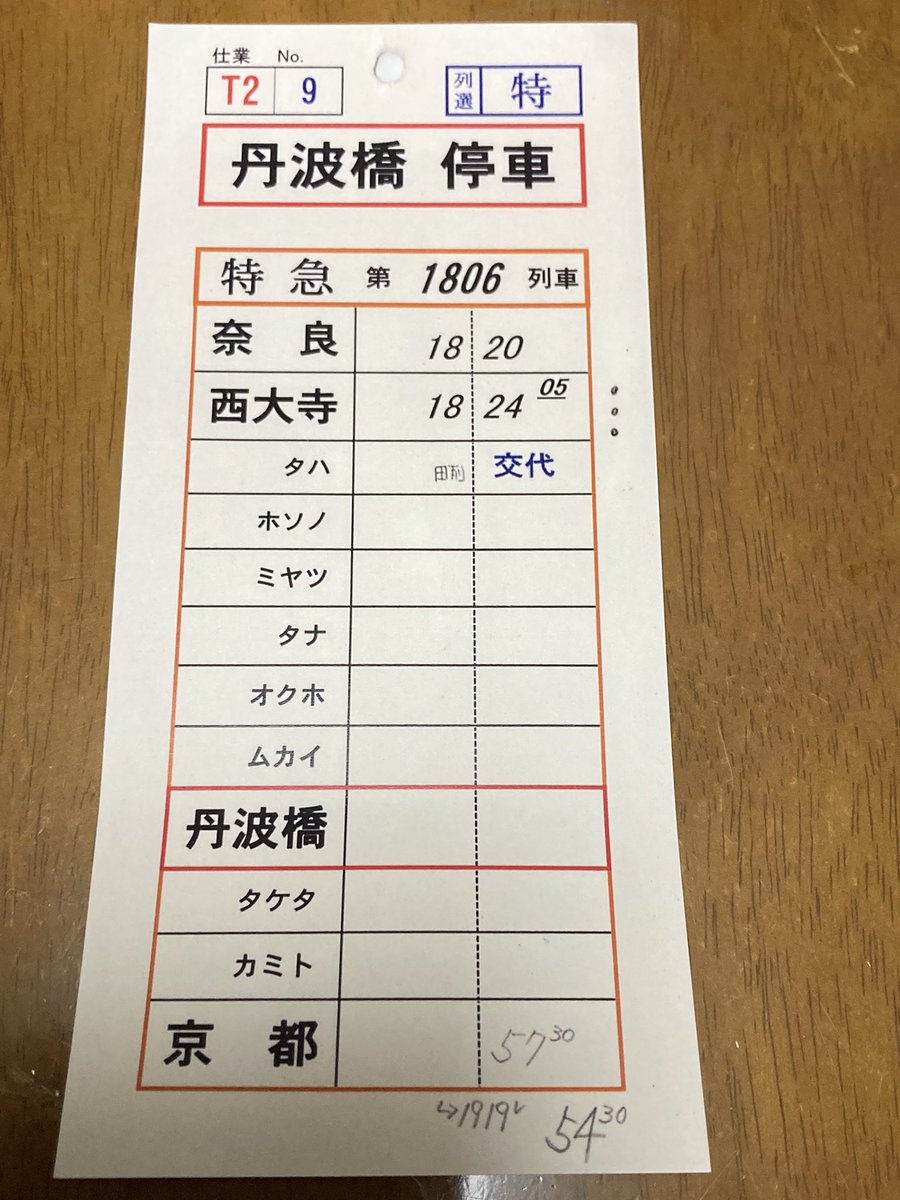 仕業 No.
T2 9 列選 特
丹波橋 停車
特急 第 1806 列車
奈良 18 20
西大寺 18 24 05
タハ 交代
ホソノ
ミヤツ
タナ
オクホ
ムカイ
丹波橋
タケタ
カミト
京都 57 30
↳1919レ 54 30